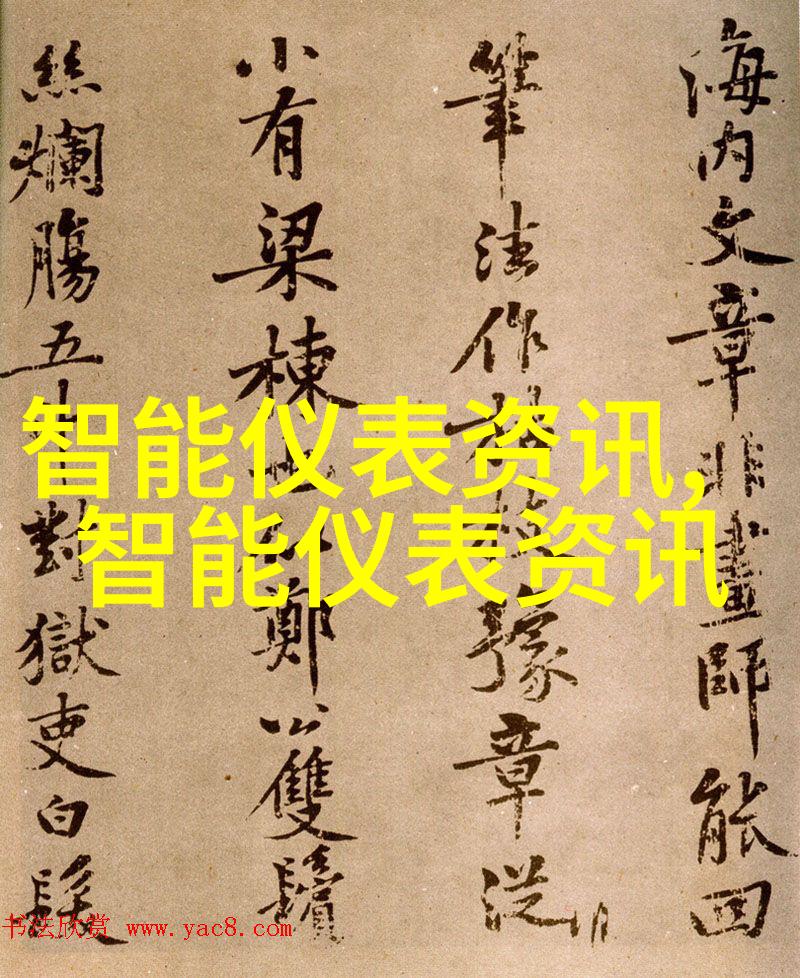 海内文章非畫師能回
筆法作豫章從
小有梁棟鄭公雙鬢
絲爛腸五對獄吏白髮
智能仪表资讯,
智能仪表资讯
书法欣赏 www.yac8.com